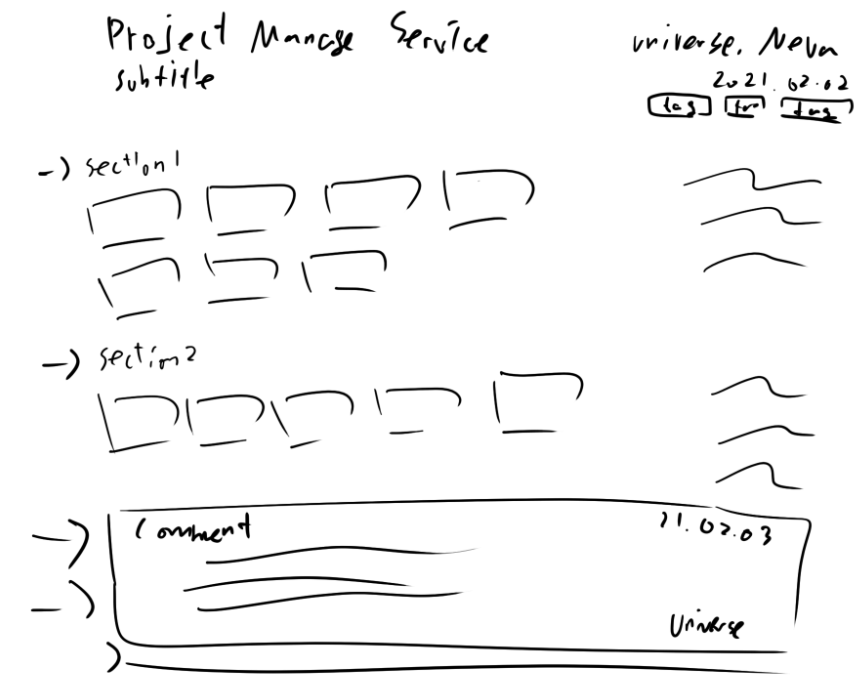 Project Manage Service
universe. Neva
subtitle
2021.02.02
tag tag tag
-) section 1
-) section 2
Comment
21.02.03
Universe